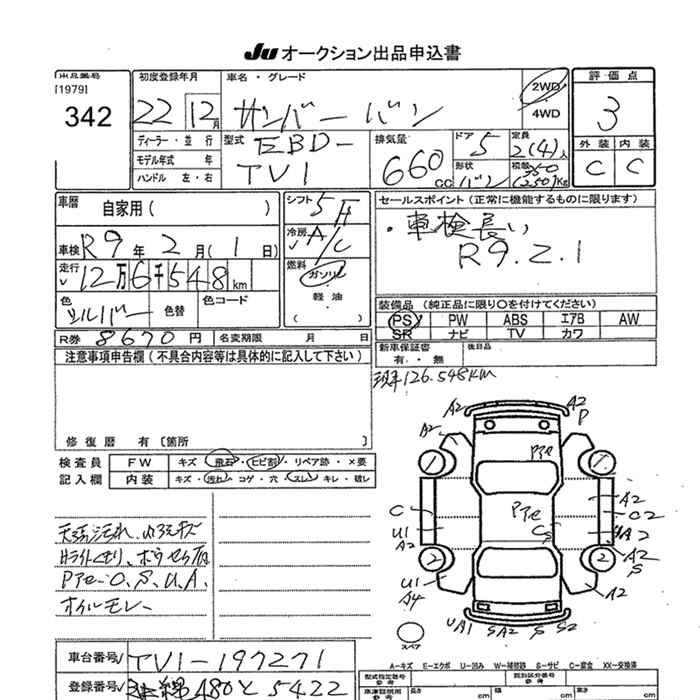 JU オークション出品申込書
出品番号
[1979]
342
初度登録年月
22年 12月
車名・グレード
サンバー バン
2WD
4WD
評価点
3
外装 内装
C C
ディーラー・並行
モデル年式 年
ハンドル 左・右
型式
EBD-
TV1
排気量
660 CC
ドア 5
形状 バン
定員
2(4)人
積載 350
(250)Kg
車歴
自家用( )
車検 R9年 2月( 1日)
走行 12万6千548km
色 シルバー
色替
色コード
R券 8670円
名変期限 月 日
シフト 5F
冷房 A/C
燃料
ガソリン
軽油
( )
セールスポイント(正常に機能するものに限ります)
・車検長い
R9.2.1
装備品(純正品に限り○を付けてください)
PS PW ABS エアB AW
SR ナビ TV カワ
新車保証書
有・無
後日品
現車126.548KM
注意事項申告欄(不具合内容等は具体的に記入して下さい)
修復歴 有〔箇所 〕
検査員
記入欄
FW キズ・飛石・ヒビ割・リペア跡・×要
内装 キズ・汚れ・コゲ・穴・スレ・キレ・破レ
天張汚れ、内張キズ
Hライトくもり、
Pアセ-O、S、U、A、
オイルモレ-
A2 A2
P
A2
Pアセ
1 1
C
Pアセ
A2
C2
U1
A2
CS
A2
A2
S
2 2
U1
A4
A2
スペア
UA1 SA2 S S2
A-キズ E-エクボ U-凹み W-補修跡 S-サビ C-腐食 XX-交換済
車台番号 TV1-197271
登録番号 480と5422
型式指定番号
参考
類別区分番号
参考
長さ cm
cm
cm